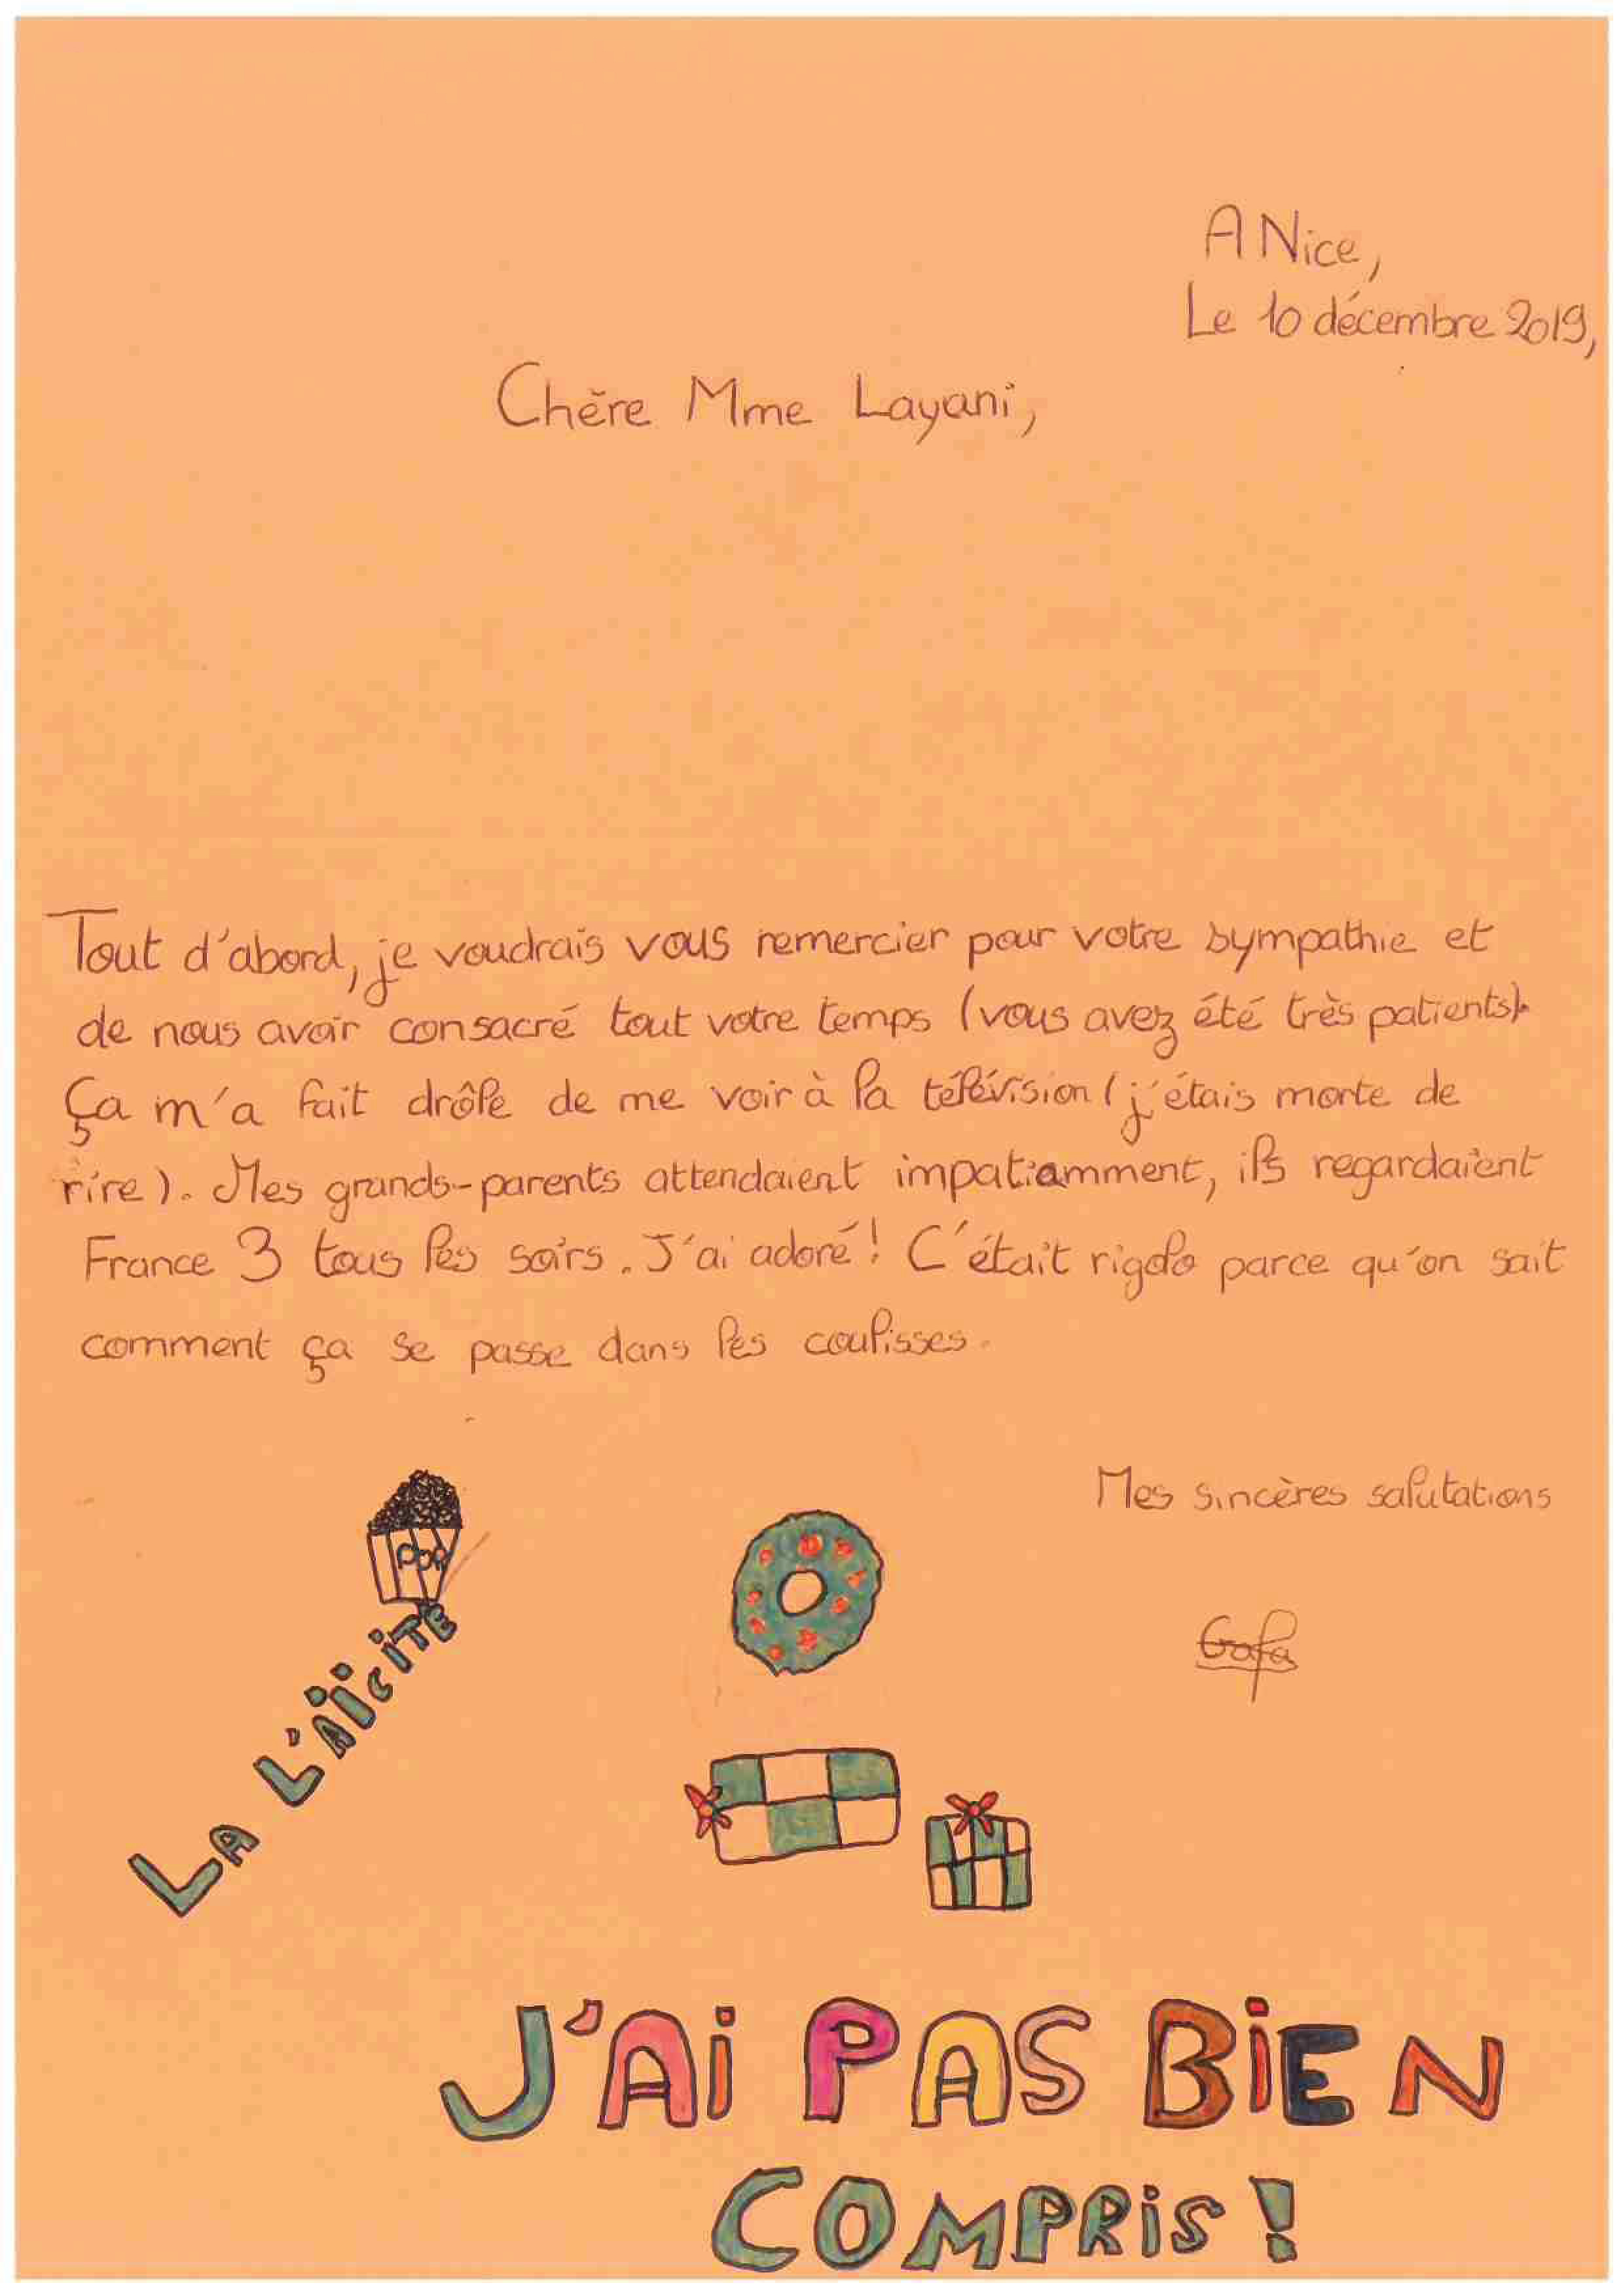 A Nice,
Le 10 décembre 2019,
Chère Mme Layani,
Tout d'abord, je voudrais vous remercier pour votre sympathie et
de nous avoir consacré tout votre temps (vous avez été très patients).
Ça m'a fait drôle de me voir à la télévision (j'étais morte de
rire). Mes grands-parents attendaient impatiamment, ils regardaient
France 3 tous les soirs. J'ai adoré! C'était rigolo parce qu'on sait
comment ça se passe dans les coulisses.
Mes sincères salutations
POP
LA L'AÏCITE
J'Ai PAS BiEN
COMPRiS!